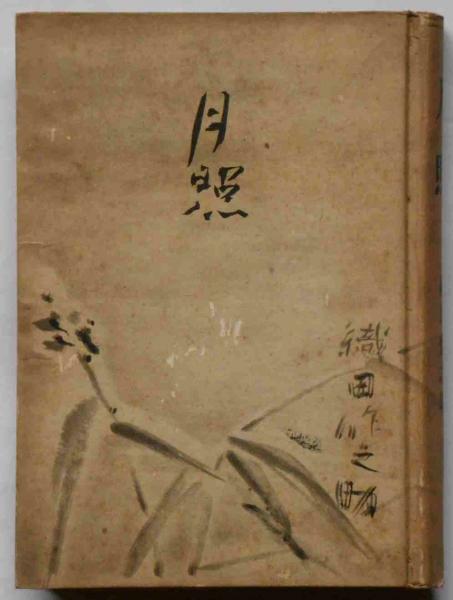 月照
織田作之助